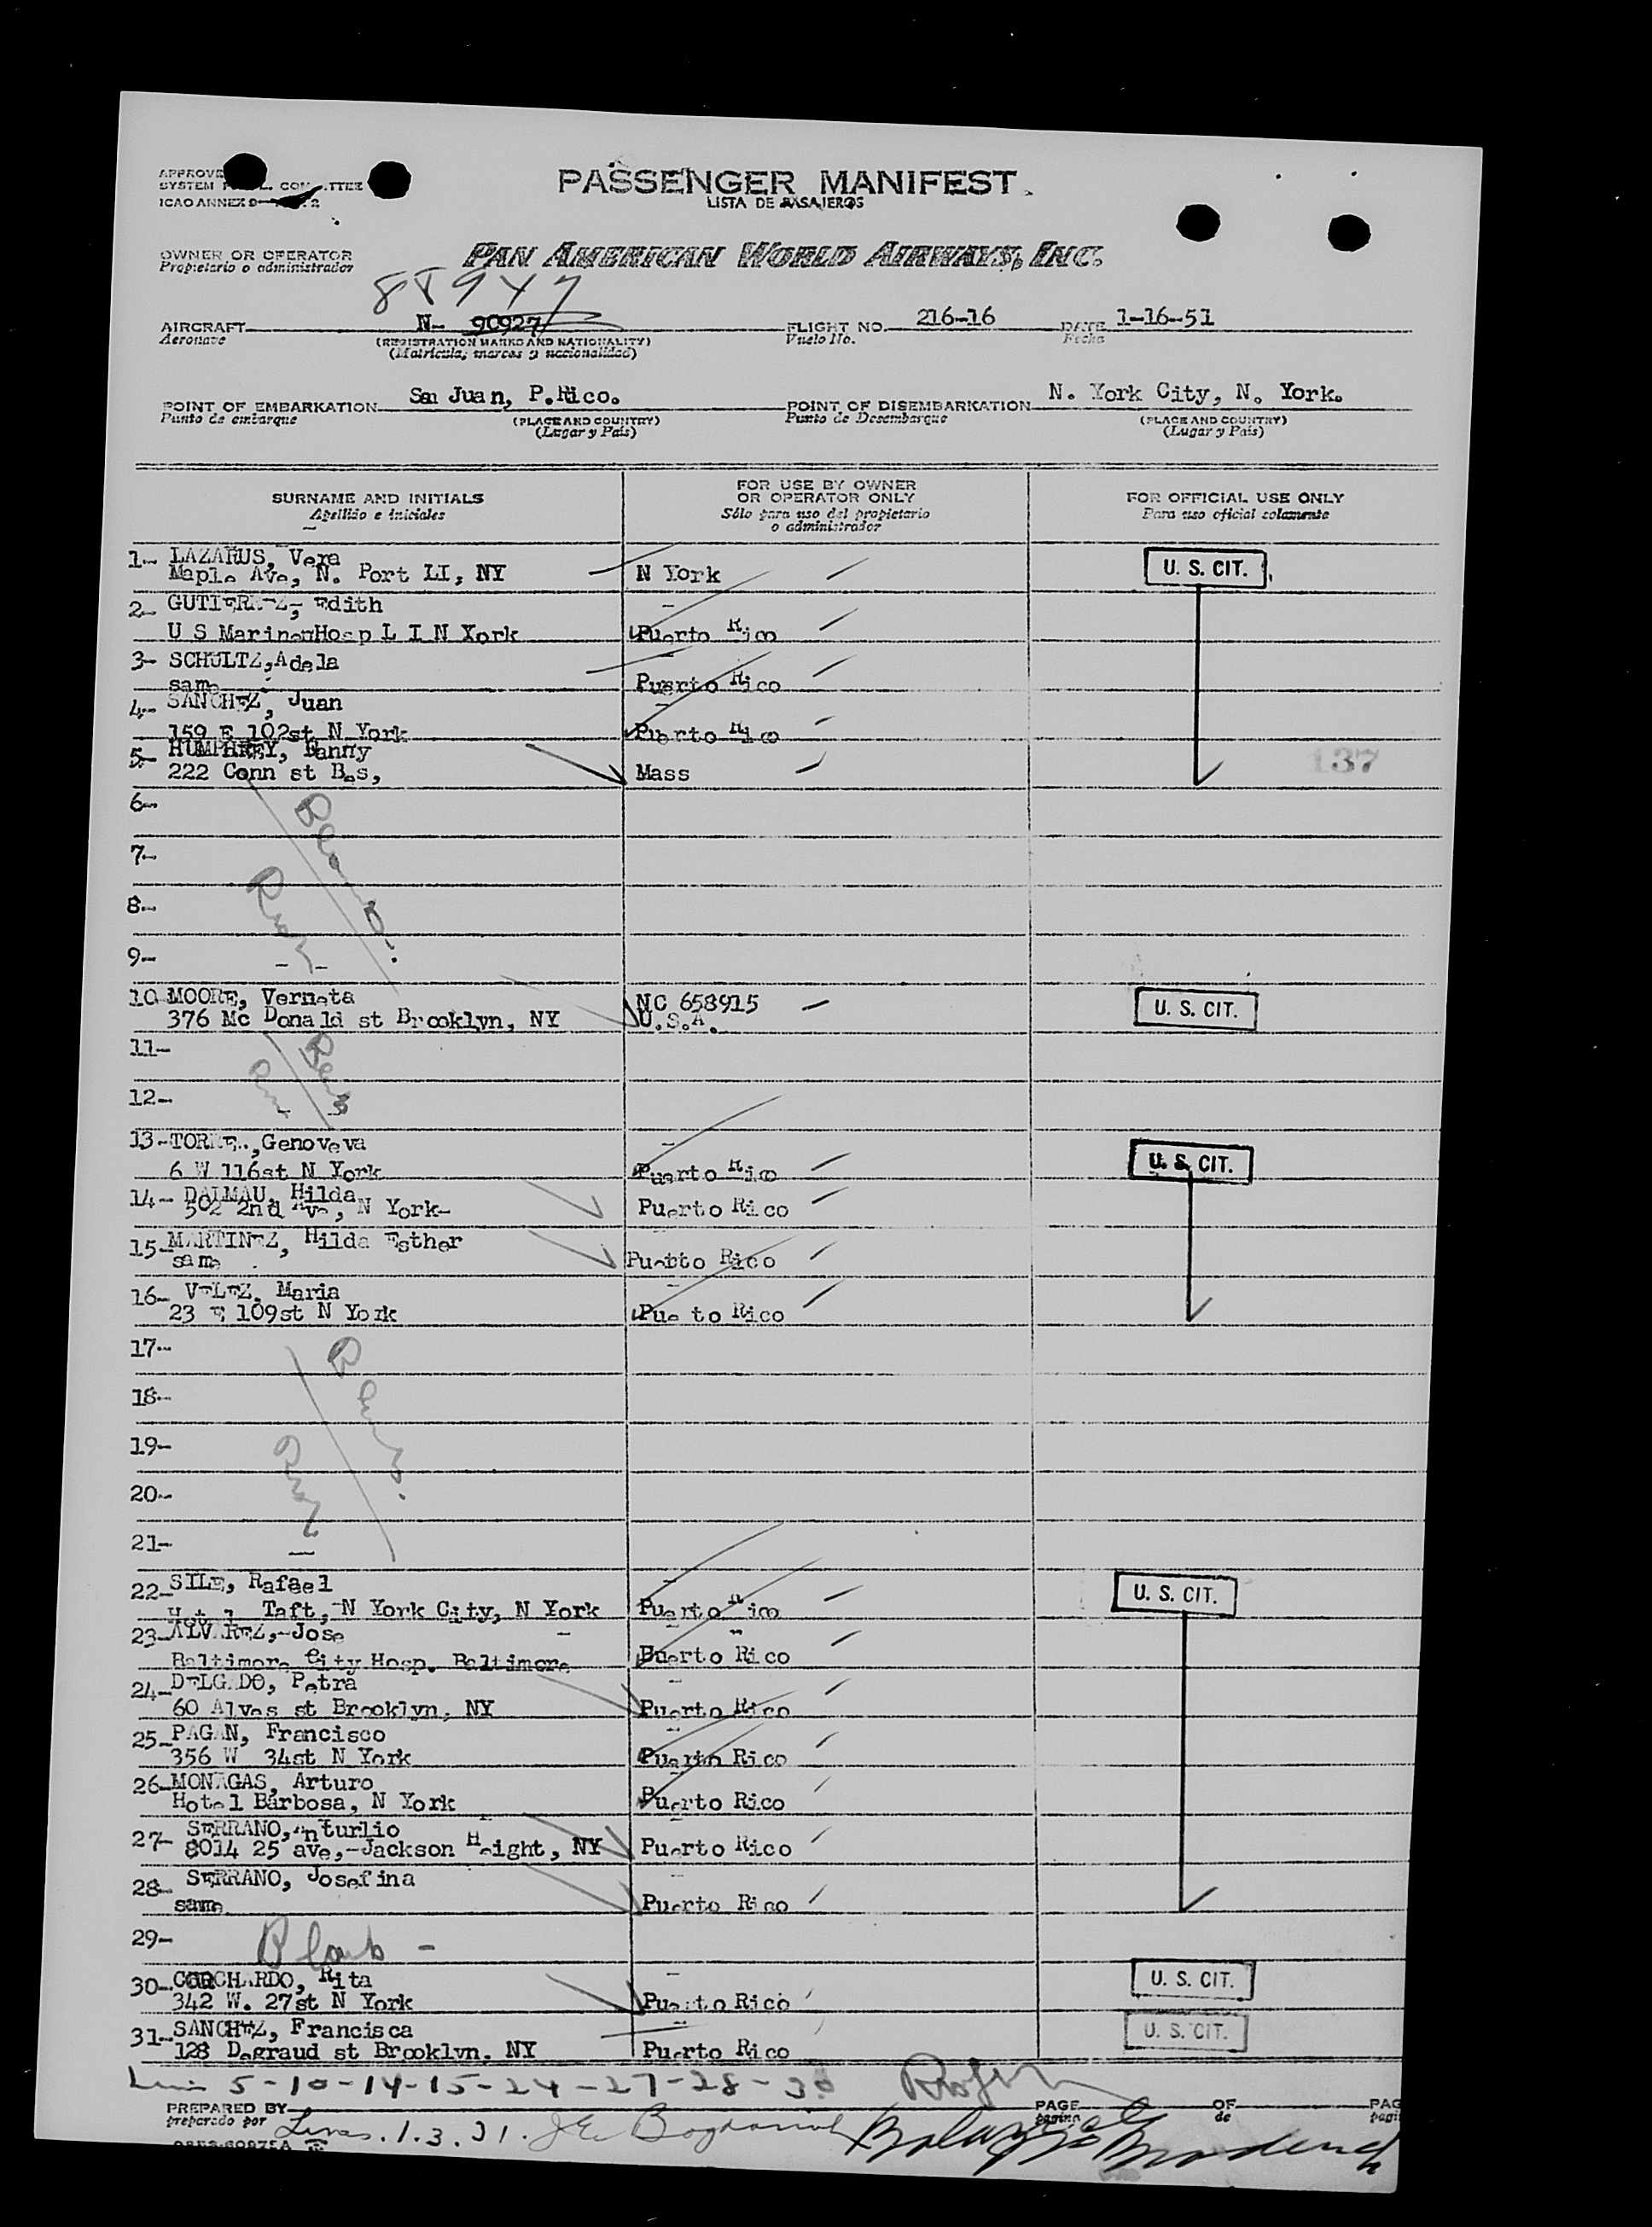 PASSENGER MANIFEST
LISTA DE PASAJEROS
ICAO ANNEX 9
OWNER OR OPERATOR
Propietario o administrador
PAN AMERICAN WORLD AIRWAYS, INC.
AIRCRAFT N- 90927 FLIGHT NO. 216-16 DATE 1-16-51
Aeronave (REGISTRATION MARKS AND NATIONALITY) Vuelo No. Fecha
(Matrícula, marcas y nacionalidad)
POINT OF EMBARKATION San Juan, P.Rico. POINT OF DISEMBARKATION N. York City, N. York.
Punto de embarque (PLACE AND COUNTRY) Punto de Desembarque (PLACE AND COUNTRY)
(Lugar y País) (Lugar y País)
SURNAME AND INITIALS FOR USE BY OWNER OR OPERATOR ONLY FOR OFFICIAL USE ONLY
Apellido e iniciales Sólo para uso del propietario o administrador Para uso oficial solamente
1- LAZARUS, Vera U. S. CIT.
Maple Ave, N. Port LI, NY N York
2- GUTIERREZ, Edith
U S Marine Hosp L I N York Puerto Rico
3- SCHULTZ, Adela
same Puerto Rico
4- SANCHEZ, Juan
159 E 102st N York Puerto Rico
5- HUMPHREY, Fanny 137
222 Conn st Bos, Mass
6-
7-
8-
9-
10 MOORE, Verneta NC 658915 U. S. CIT.
376 Mc Donald st Brooklyn, NY U.S.A.
11-
12-
13- TORRE, Genoveva U. S. CIT.
6 W 116st N York Puerto Rico
14- DALMAU, Hilda
502 2nd Ave, N York- Puerto Rico
15- MARTINEZ, Hilda Esther
same Puerto Rico
16- VELEZ, Maria
23 E 109st N York Pue to Rico
17-
18-
19-
20-
21-
22- SILE, Rafael U. S. CIT.
Hotel Taft, N York City, N York Puerto Rico
23- ALVAREZ, Jose
Baltimore City Hosp. Baltimore Puerto Rico
24- DELGADO, Petra
60 Alves st Brooklyn, NY Puerto Rico
25- PAGAN, Francisco
356 W 34st N York Puerto Rico
26- MONAGAS, Arturo
Hotel Barbosa, N York Puerto Rico
27- SERRANO, Anturlio
8014 25 ave,-Jackson Height, NY Puerto Rico
28- SERRANO, Josefina
same Puerto Rico
29- Blank -
30- CORCHARDO, Rita U. S. CIT.
342 W. 27st N York Puerto Rico
31- SANCHEZ, Francisca U. S. CIT.
128 Degraud st Brooklyn. NY Puerto Rico
5-10-14-15-24-27-28-30
PREPARED BY PAGE OF
preparado por Lines. 1. 3. 31. página de